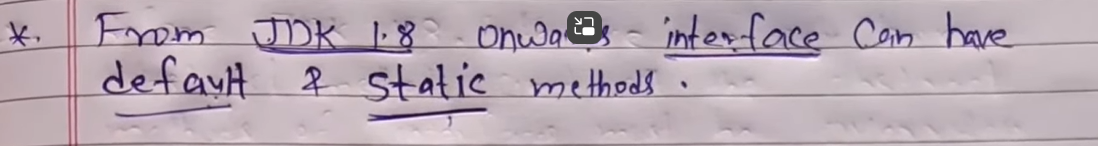 *. From JDK 1.8 onwards interface Can have
default & static methods.